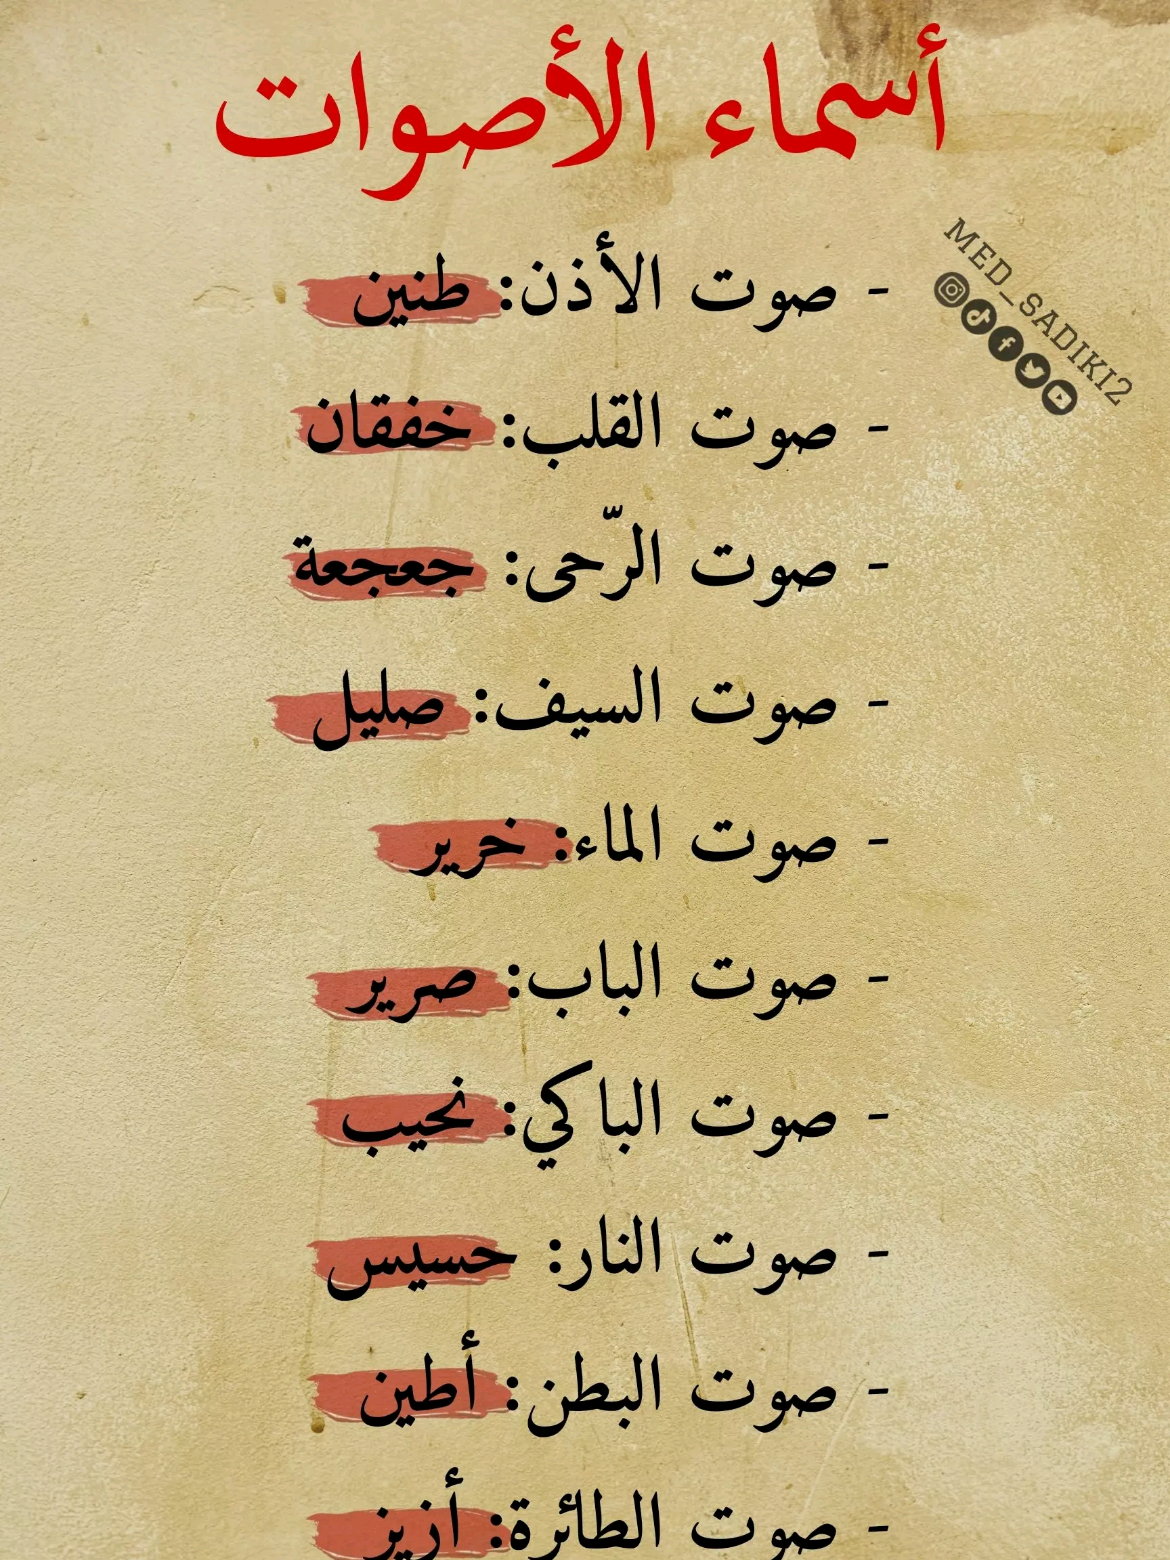 أسماء الأصوات
MED_SADIKI2
- صوت الأذن: طنين
- صوت القلب: خفقان
- صوت الرّحى: جعجعة
- صوت السيف: صليل
- صوت الماء: خرير
- صوت الباب: صرير
- صوت الباكي: نحيب
- صوت النار: حسيس
- صوت البطن: أطين
- صوت الطائرة: أزيز